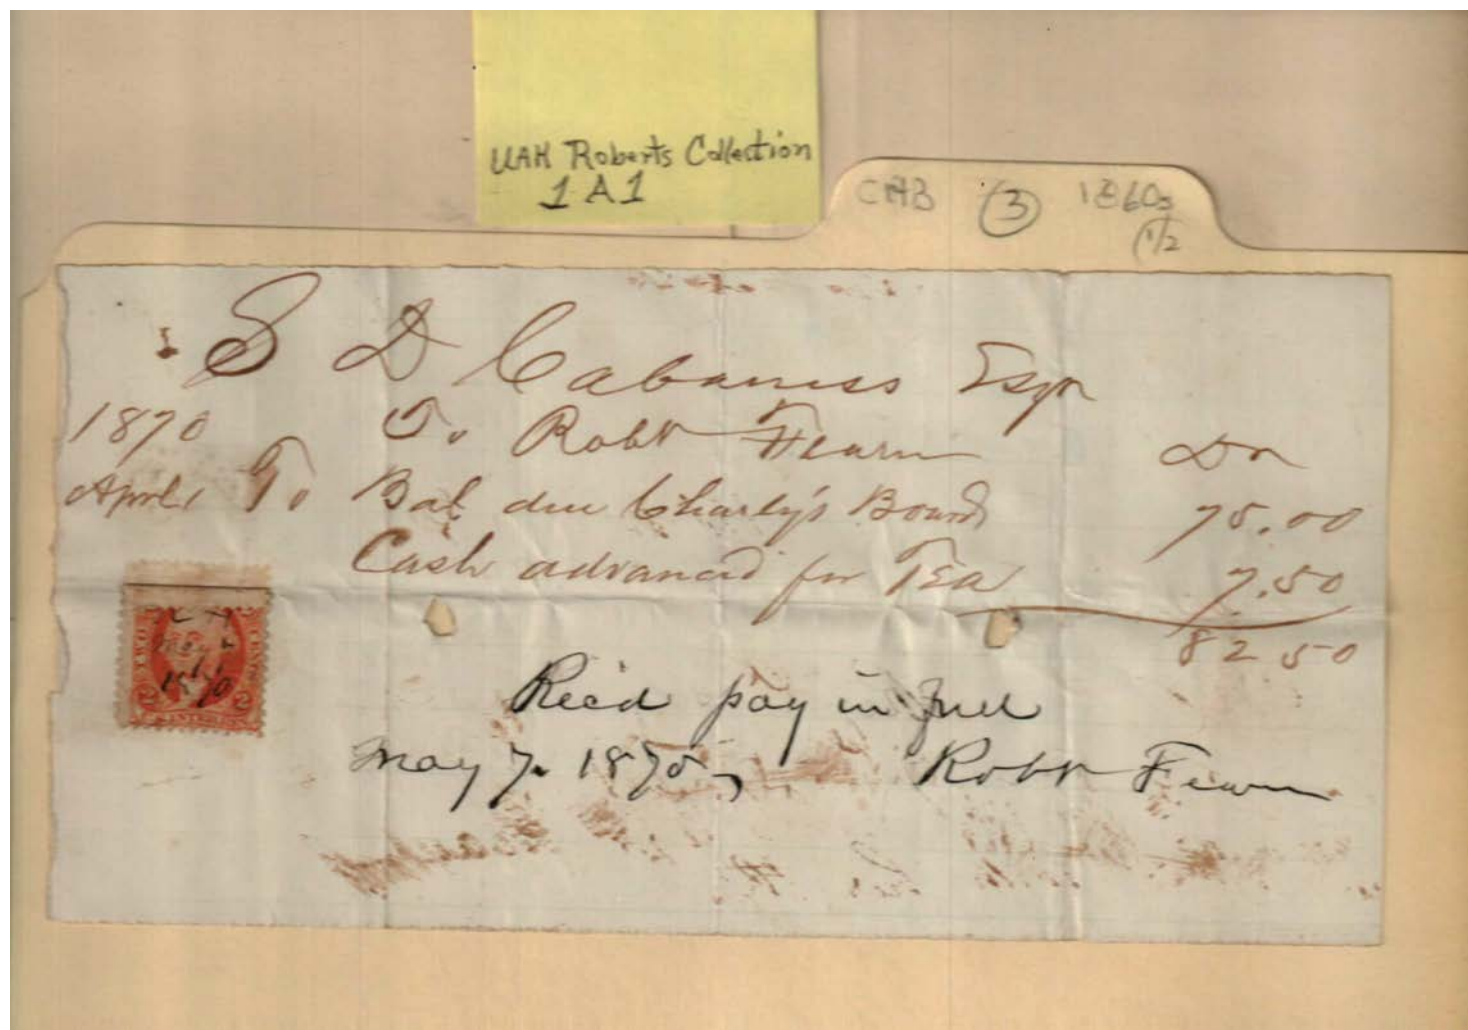 UAH Roberts Collection
1A1
CAB ③ 1860s
1/2
S D Cabaniss Esqr
1870 To Robt Fearn Dr
April 1 To Bal. due Charly's Board 75.00
Cash advanced for Tea 7.50
82 50
TWO CENTS
2 2
May
1870
Rec'd pay in full
May 7. 1870, Robt Fearn